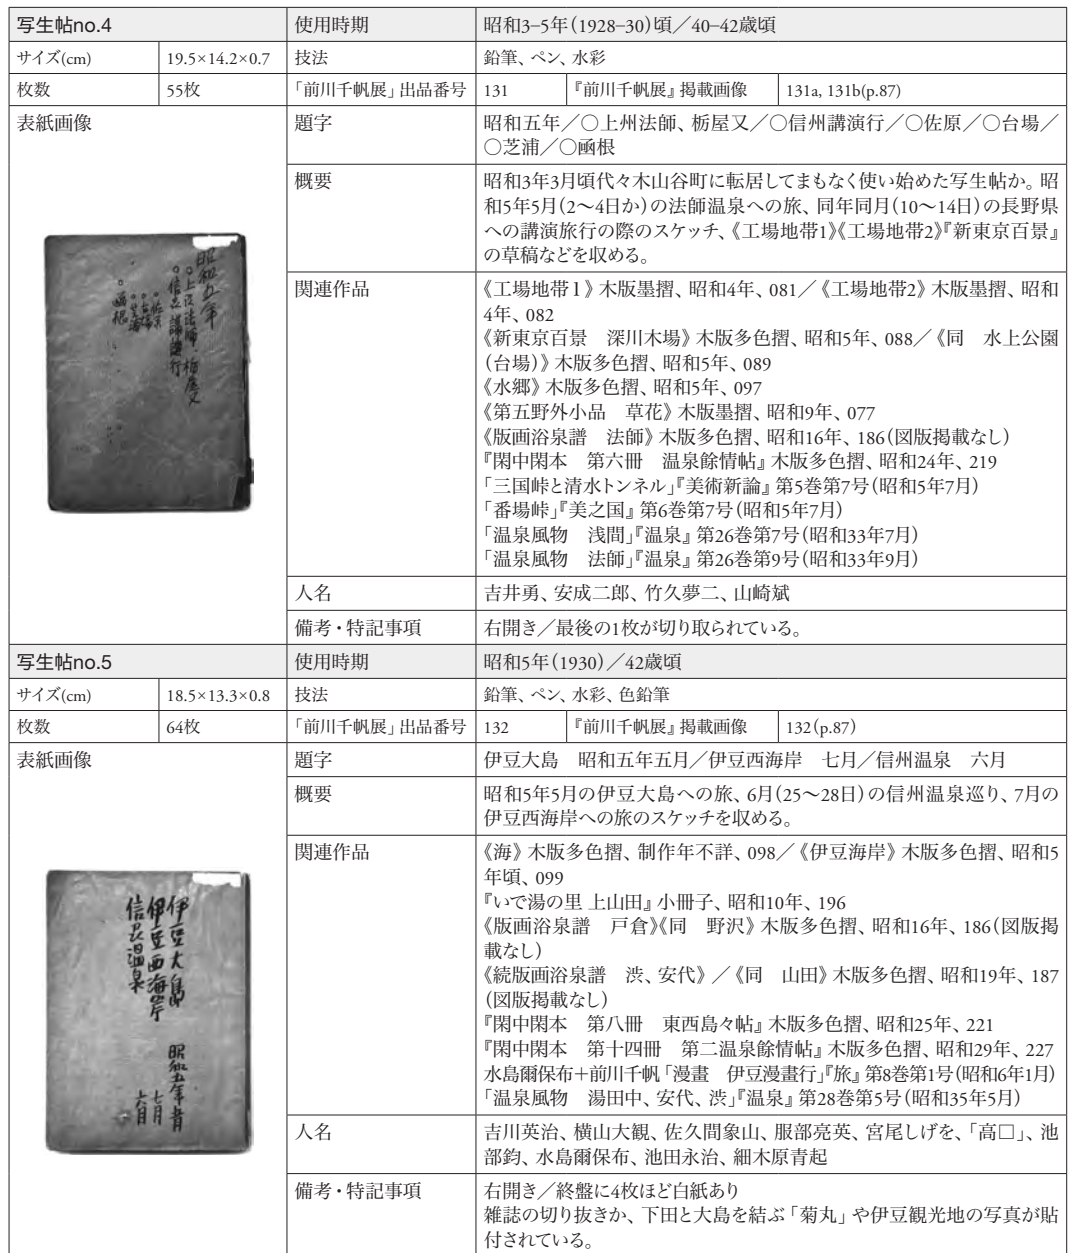 写生帖no.4 使用時期 昭和3–5年(1928–30)頃／40–42歳頃
サイズ(cm) 19.5×14.2×0.7 技法 鉛筆、ペン、水彩
枚数 55枚 「前川千帆展」出品番号 131 『前川千帆展』掲載画像 131a, 131b(p.87)
表紙画像 題字 昭和五年／〇上州法師、栃屋又／〇信州講演行／〇佐原／〇台場／
〇芝浦／〇凾根
昭和五年
〇上州法師、栃屋又
〇信州講演行
〇佐原
〇台場
〇芝浦
〇凾根
概要 昭和3年3月頃代々木山谷町に転居してまもなく使い始めた写生帖か。昭
和5年5月(2〜4日か)の法師温泉への旅、同年同月(10〜14日)の長野県
への講演旅行の際のスケッチ、《工場地帯1》《工場地帯2》『新東京百景』
の草稿などを収める。
関連作品 《工場地帯１》木版墨摺、昭和4年、081／《工場地帯2》木版墨摺、昭和
4年、082
《新東京百景　深川木場》木版多色摺、昭和5年、088／《同　水上公園
(台場)》木版多色摺、昭和5年、089
《水郷》木版多色摺、昭和5年、097
《第五野外小品　草花》木版墨摺、昭和9年、077
《版画浴泉譜　法師》木版多色摺、昭和16年、186(図版掲載なし)
『閑中閑本　第六冊　温泉餘情帖』木版多色摺、昭和24年、219
「三国峠と清水トンネル」『美術新論』第5巻第7号(昭和5年7月)
「番場峠」『美之国』第6巻第7号(昭和5年7月)
「温泉風物　浅間」『温泉』第26巻第7号(昭和33年7月)
「温泉風物　法師」『温泉』第26巻第9号(昭和33年9月)
人名 吉井勇、安成二郎、竹久夢二、山崎斌
備考・特記事項 右開き／最後の1枚が切り取られている。
写生帖no.5 使用時期 昭和5年(1930)／42歳頃
サイズ(cm) 18.5×13.3×0.8 技法 鉛筆、ペン、水彩、色鉛筆
枚数 64枚 「前川千帆展」出品番号 132 『前川千帆展』掲載画像 132(p.87)
表紙画像 題字 伊豆大島　昭和五年五月／伊豆西海岸　七月／信州温泉　六月
伊豆大島　昭和五年五月
伊豆西海岸　七月
信州温泉　六月
概要 昭和5年5月の伊豆大島への旅、6月(25〜28日)の信州温泉巡り、7月の
伊豆西海岸への旅のスケッチを収める。
関連作品 《海》木版多色摺、制作年不詳、098／《伊豆海岸》木版多色摺、昭和5
年頃、099
『いで湯の里 上山田』小冊子、昭和10年、196
《版画浴泉譜　戸倉》《同　野沢》木版多色摺、昭和16年、186(図版掲
載なし)
《続版画浴泉譜　渋、安代》／《同　山田》木版多色摺、昭和19年、187
(図版掲載なし)
『閑中閑本　第八冊　東西島々帖』木版多色摺、昭和25年、221
『閑中閑本　第十四冊　第二温泉餘情帖』木版多色摺、昭和29年、227
水島爾保布＋前川千帆「漫畫　伊豆漫畫行」『旅』第8巻第1号(昭和6年1月)
「温泉風物　湯田中、安代、渋」『温泉』第28巻第5号(昭和35年5月)
人名 吉川英治、横山大観、佐久間象山、服部亮英、宮尾しげを、「高□」、池
部鈞、水島爾保布、池田永治、細木原青起
備考・特記事項 右開き／終盤に4枚ほど白紙あり
雑誌の切り抜きか、下田と大島を結ぶ「菊丸」や伊豆観光地の写真が貼
付されている。